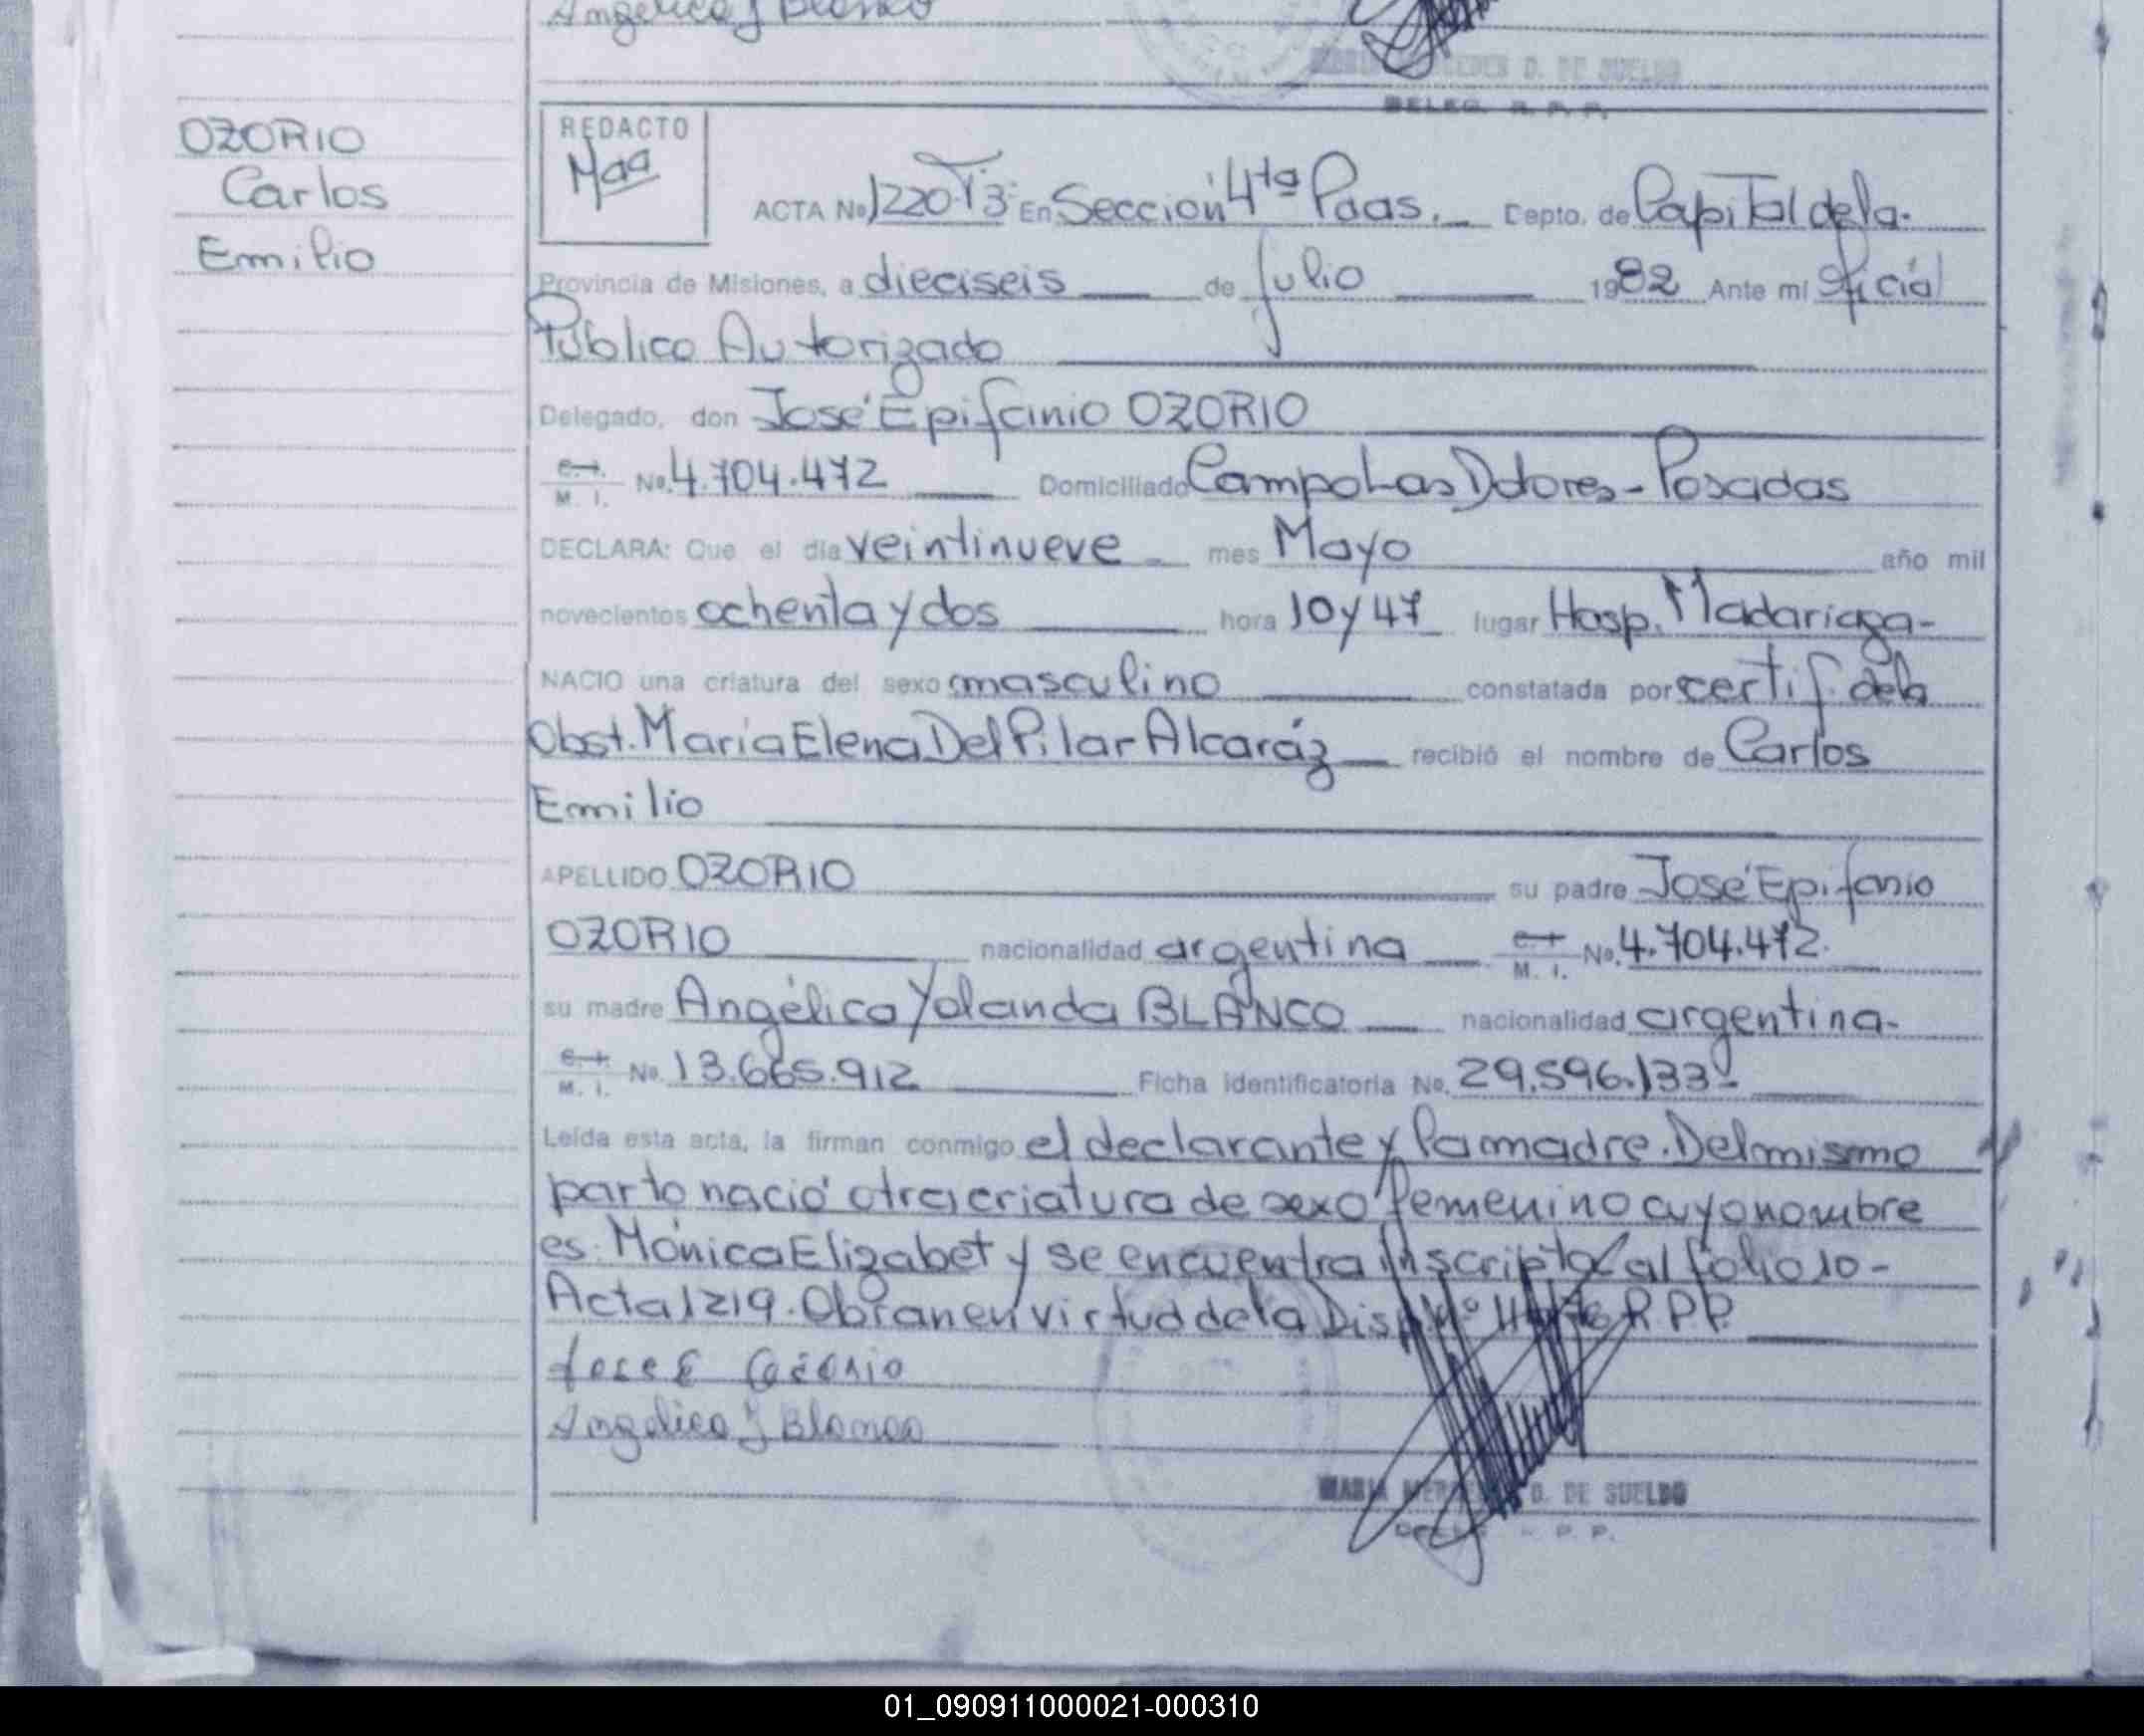 Angelica J Blanco
DE SUELDO
DELEG. R. P. P.
OZORIO
Carlos
Emilio
REDACTO
Maa
ACTA No 1220 T3: En Sección 4ta Pdas. Depto. de Capital de la
Provincia de Misiones, a dieciseis de Julio 1982 Ante mí Oficial
Público Autorizado
Delegado, don José Epifanio OZORIO
C. I. M. I. No. 4.704.472 Domiciliado Campo Las Dolores - Posadas
DECLARA: Que el día veintinueve mes Mayo año mil
novecientos ochenta y dos hora 10 y 47 lugar Hosp. Madariaga -
NACIO una criatura del sexo masculino constatada por certif. de la
Obst. María Elena Del Pilar Alcaráz recibió el nombre de Carlos
Emilio
APELLIDO OZORIO su padre José Epifanio
OZORIO nacionalidad argentina C. I. M. I. No. 4.704.472.
su madre Angélica Yolanda BLANCO nacionalidad argentina -
C. I. M. I. No. 13.665.912 Ficha identificatoria No. 29.596.133
Leída esta acta, la firman conmigo el declarante y la madre. Del mismo
parto nació otra criatura de sexo femenino cuyo nombre
es: Mónica Elizabet y se encuentra inscripta al folio 10 -
Acta 1219. Obran en virtud de la Disp. Nº R P P.
Jose E Ozorio
Angelica J Blanco
MARIA MERCEDES D. DE SUELDO
P. P.
01_090911000021-000310